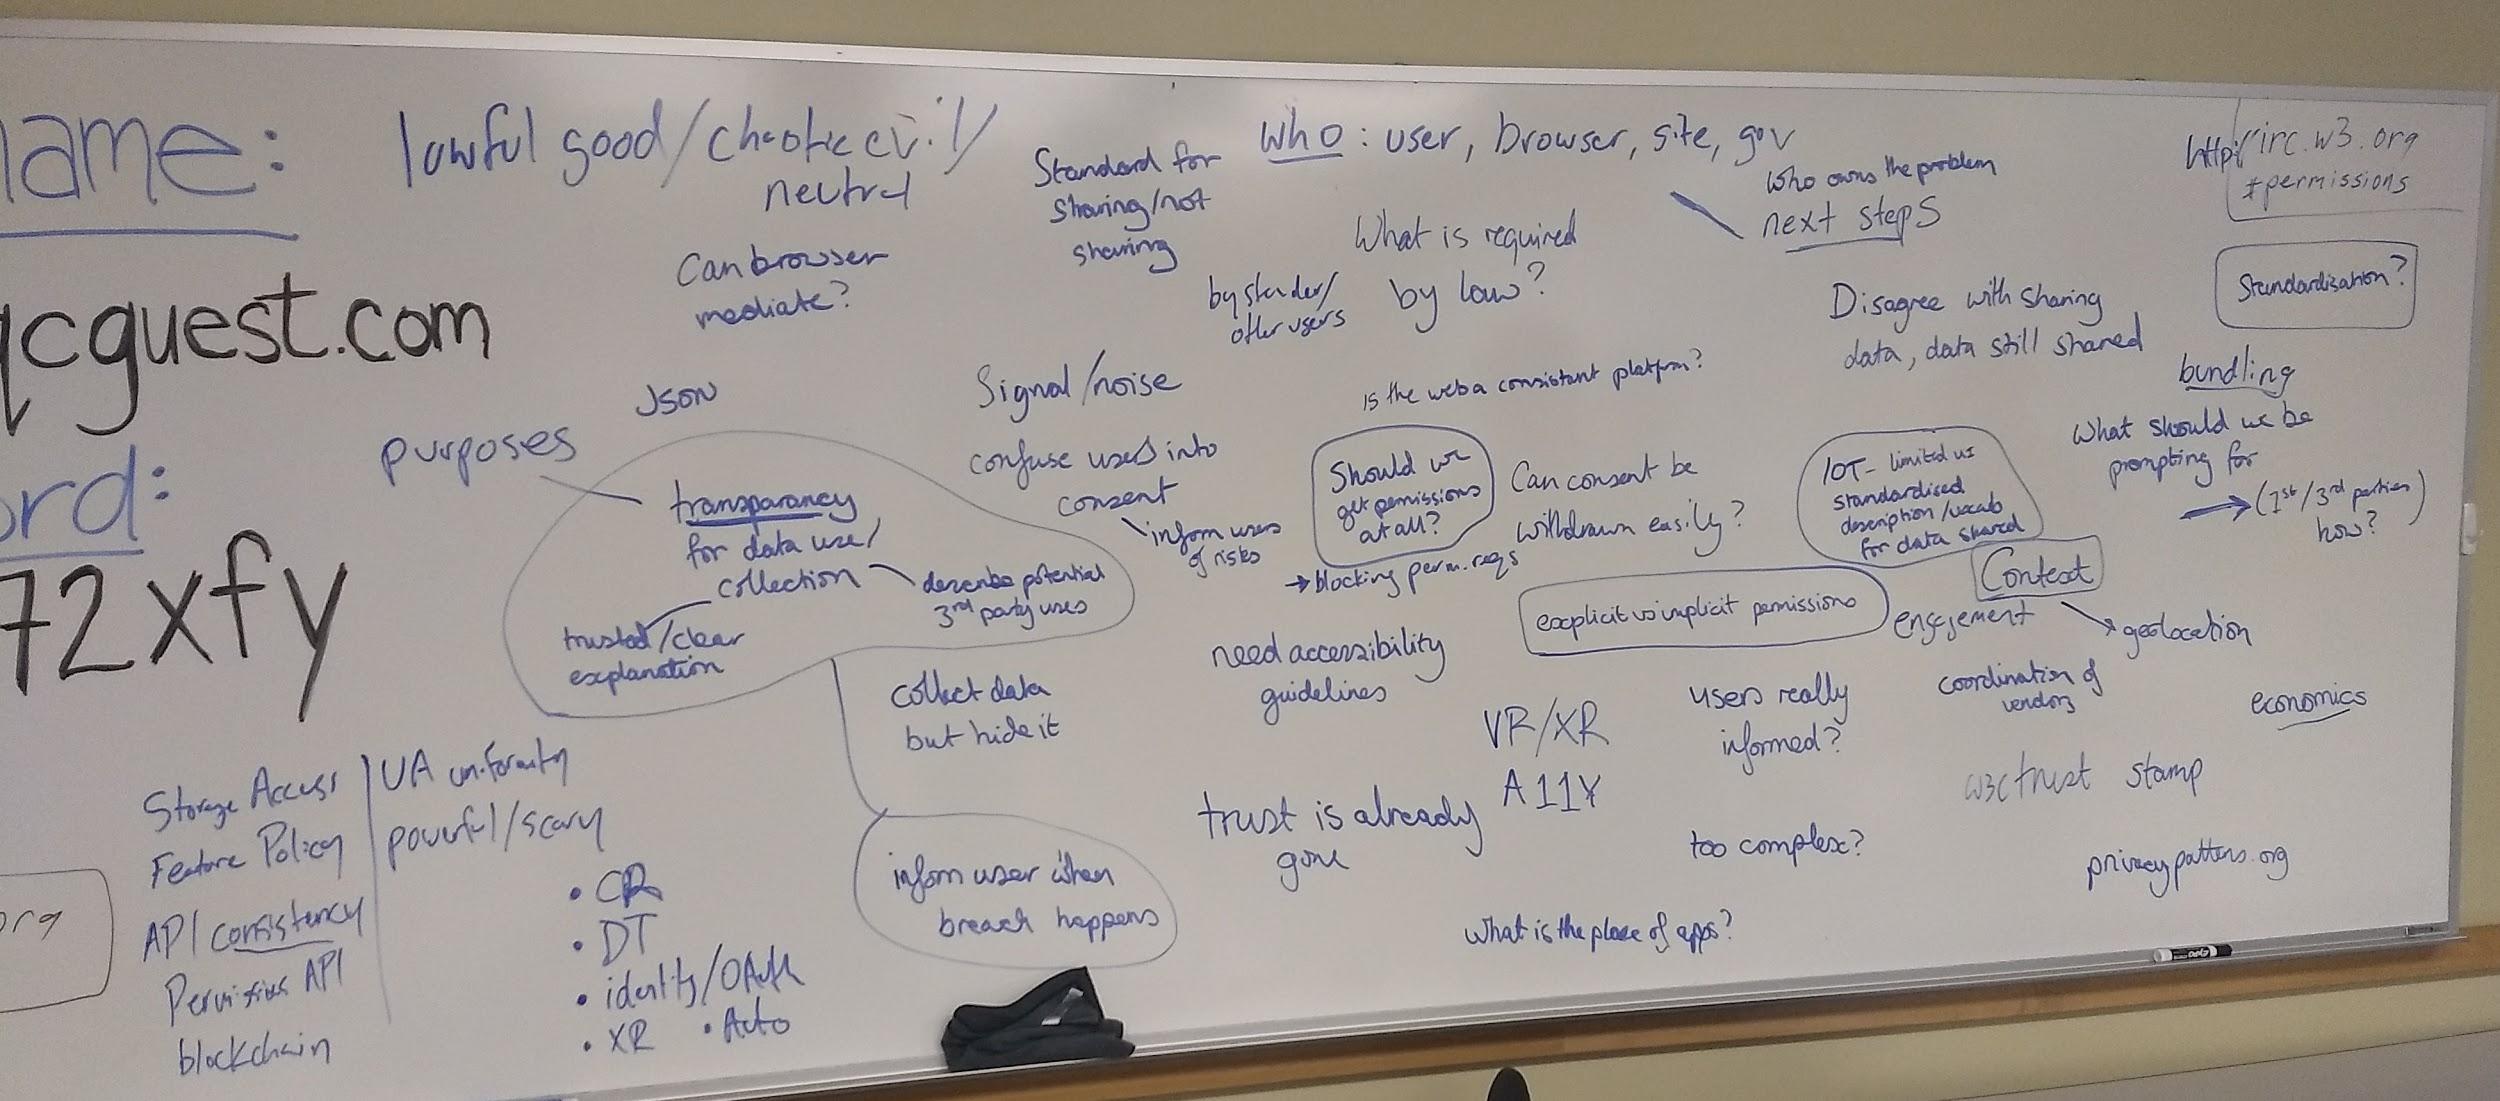 name:
lawful good/chaotic evil/
neutral
qcguest.com
ord:
72xfy
org
Can browser
mediate?
Json
purposes
transparancy
for data use/
collection
describe potential
3rd party uses
trusted/clear
explanation
Standard for
sharing/not
sharing
Signal/noise
confuse users into
consent
inform users
of risks
collect data
but hide it
inform user when
breach happens
Storage Access
Feature Policy
API consistency
Permissions API
blockchain
UA uniformity
powerful/scary
• CR
• DT
• identity/OAuth
• XR • Auto
who: user, browser, site, gov
who owns the problem
next steps
What is required
by law?
bystander/
other users
is the web a consistant platform?
Should we
get permissions
at all?
→ blocking perm. reqs
Can consent be
withdrawn easily?
explicit vs implicit permissions
need accessibility
guidelines
VR/XR
A11Y
trust is already
gone
users really
informed?
too complex?
What is the place of apps?
http://irc.w3.org
#permissions
Standardisation?
Disagree with sharing
data, data still shared
bundling
What should we be
prompting for
→ (1st/3rd parties)
how?
IOT- limited UI
standardised
description/vocab
for data shared
Context
engagement
geolocation
coordination of
vendors
economics
W3C trust stamp
privacypatterns.org